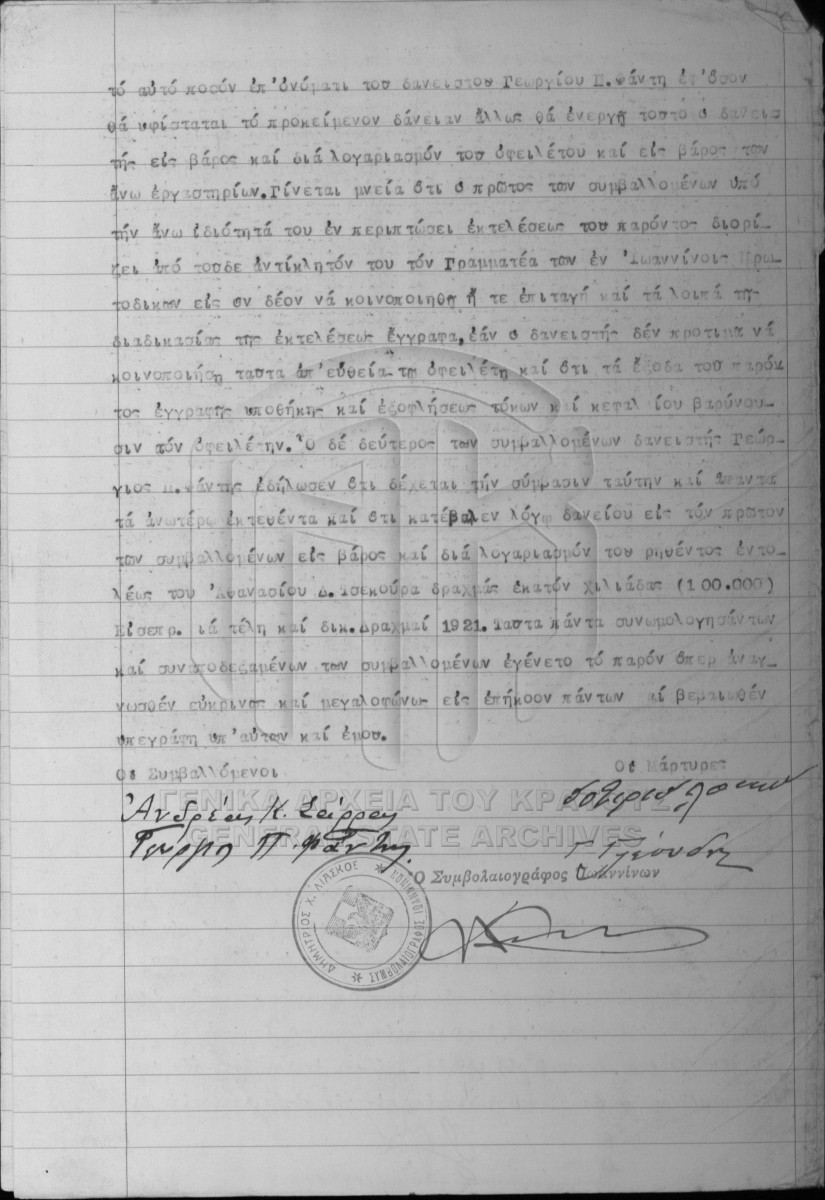 τό αὐτό ποσόν ἐπ'ὀνόματι του δανειστου Γεωργίου Π.Φάντη ἐφ'ὅσον
θά υφίσταται τό προκείμενον δάνειαν ἄλλως θά ἐνεργῇ τοστο ο δανεισ
τής εἰς βάρος καί διά λογαριασμόν του ὀφειλέτου καί εἰς βάρος των
ἄνω ἐργαστηρίων.Γίνεται μνεία ὅτι ο πρῶτος των συμβαλλομένων υπό
τήν ἄνω ἰδιότητά του ἐν περιπτώσει ἐκτελέσεως του παρόντος διορί-
ζει ἀπό τουδε ἀντίκλητόν του τόν Γραμματέα των ἐν Ἰωαννίνοις Πρω-
τοδικων εἰς ον δέον νά κοινοποιηθῇ ἥ τε ἐπιταγή καί τά λοιπά της
διαδικασίας της ἐκτελέσεως ἔγγραφα,ἐάν ο δανειστής δέν προτιμᾳ νά
κοινοποιήσῃ ταστα ἀπ'εὐθεία τῳ ὀφειλέτῃ καί ὅτι τά ἔξοδα του παρόν
τος ἐγγραφῆς υποθήκης καί ἐξοφλήσεως τόκων καί κεφαλ ίου βαρύνου-
σιν τόν ὀφειλέτην.Ὁ δέ δεύτερος των συμβαλλομένων δανειστής Γεώρ-
γιος Π.Φάντης ἐδήλωσεν ὅτι δέχεται τήν σύμβασιν ταύτην καί ἅπαντα
τά ἀνωτέρω ἐκτεθέντα καί ὅτι κατέβαλεν λόγῳ δανείου εἰς τόν πρῶτον
των συμβαλλομένων εἰς βάρος καί διά λογαριασμόν του ρηθέντος ἐντο-
λέως του Ἀθανασίου Δ.Τσεκούρα δραχμάς ἑκατόν χιλιάδας (100.000)
Εἰσεπρ. ιά τέλη καί δικ.Δραχμαί 1921.Ταστα πάντα συνωμολογησάντων
καί συναποδεξαμένων των συμβαλλομένων ἐγένετο τό παρόν ὅπερ ἀναγ-
νωσθέν εὐκρινως καί μεγαλοφώνως εἰς ἐπήκοον πάντων αί βεβαιωθέν
υπεγράφη υπ'αὐτων καί ἐμου.
Οι Συμβαλλόμενοι Οι Μάρτυρες
Ἀνδρέας Κ. Σάρρας
Γεώργιος Π. Φάντης
ΓΕΝΙΚΑ ΑΡΧΕΙΑ ΤΟΥ ΚΡΑΤΟΥΣ
GENERAL STATE ARCHIVES
Ὁ Συμβολαιογράφος Ἰωαννίνων
ΔΗΜΗΤΡΙΟΣ Χ. ΛΙΑΣΚΟΣ * ΣΥΜΒΟΛΑΙΟΓΡΑΦΟΣ *